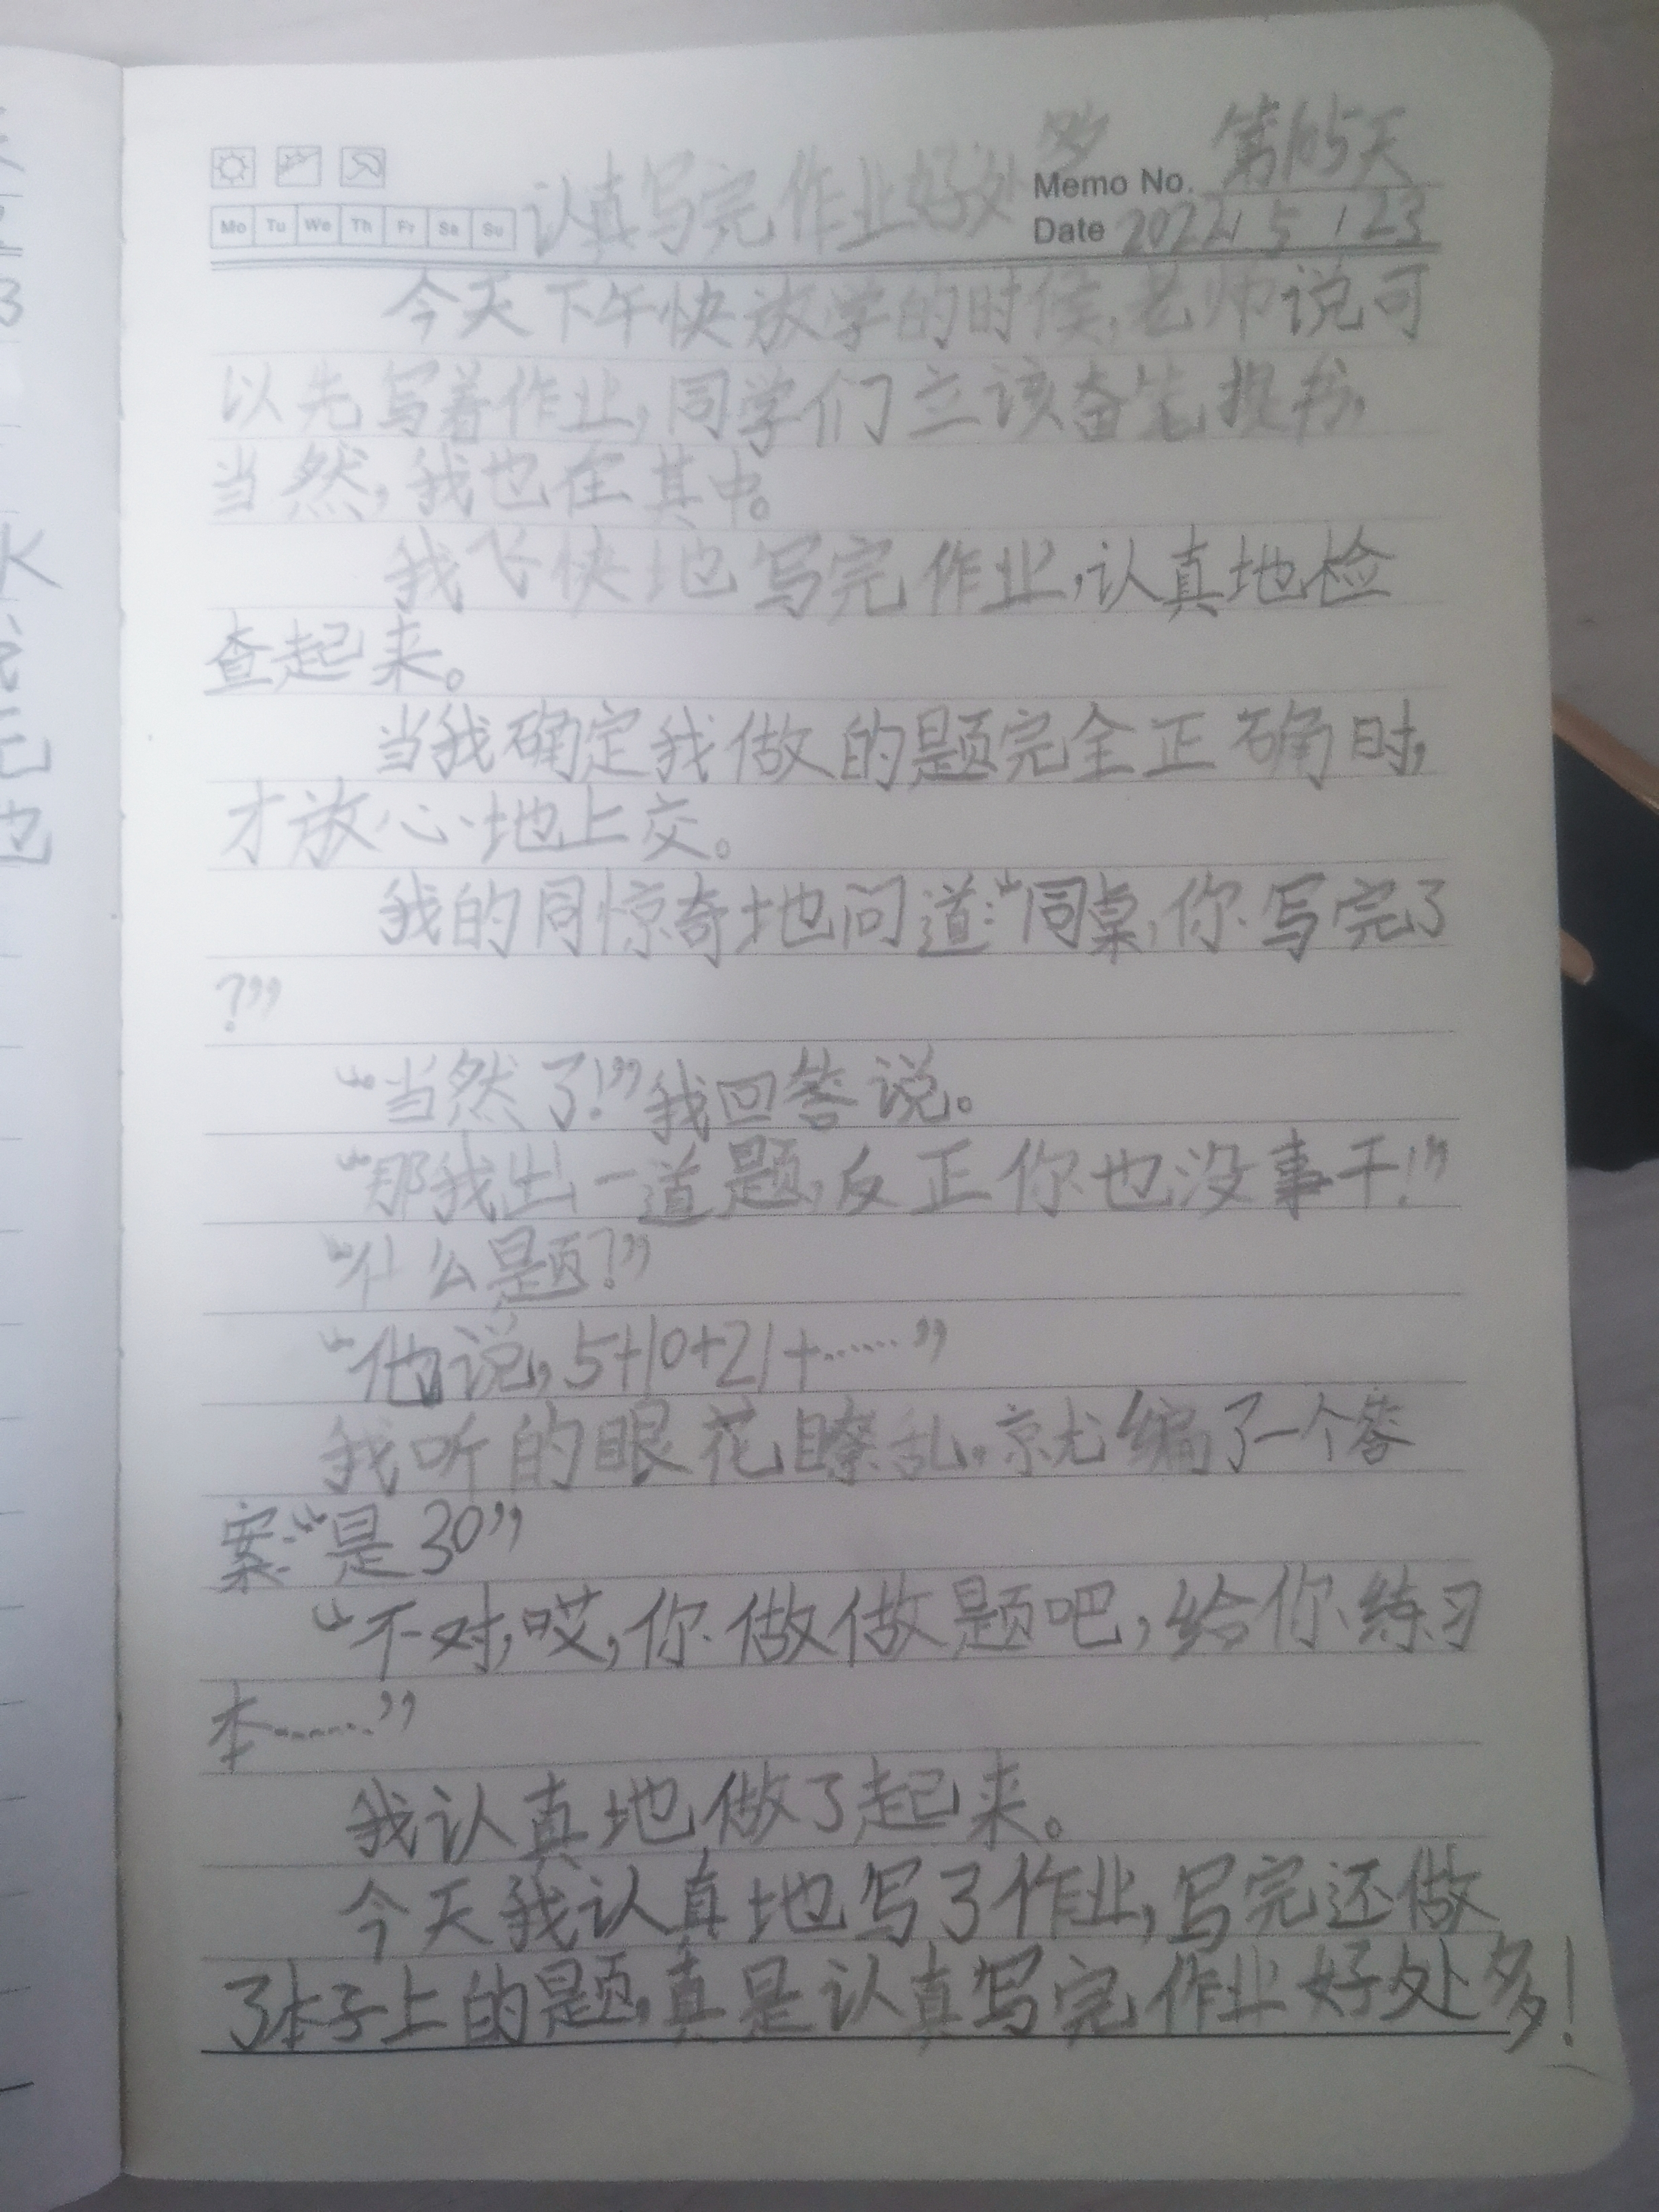 第165天
Memo No.
认真写完作业好处多
Mo Tu We Th Fr Sa Su
Date 2022 / 5 / 23
今天下午快放学的时候,老师说可
以先写着作业,同学们立该奋笔提书,
当然,我也在其中。
我飞快地写完作业,认真地检
查起来。
当我确定我做的题完全正确时,
才放心地上交。
我的同惊奇地问道:“同桌,你写完了
?”
“当然了!”我回答说。
“那我出一道题,反正你也没事干!”
“什么题?”
“他说,5+10+21+……”
我听的眼花瞭乱。就编了一个答
案:“是30”
“不对,哎,你做做题吧,给你练习
本……”
我认真地做了起来。
今天我认真地写了作业,写完还做
了本子上的题,真是认真写完作业好处多!